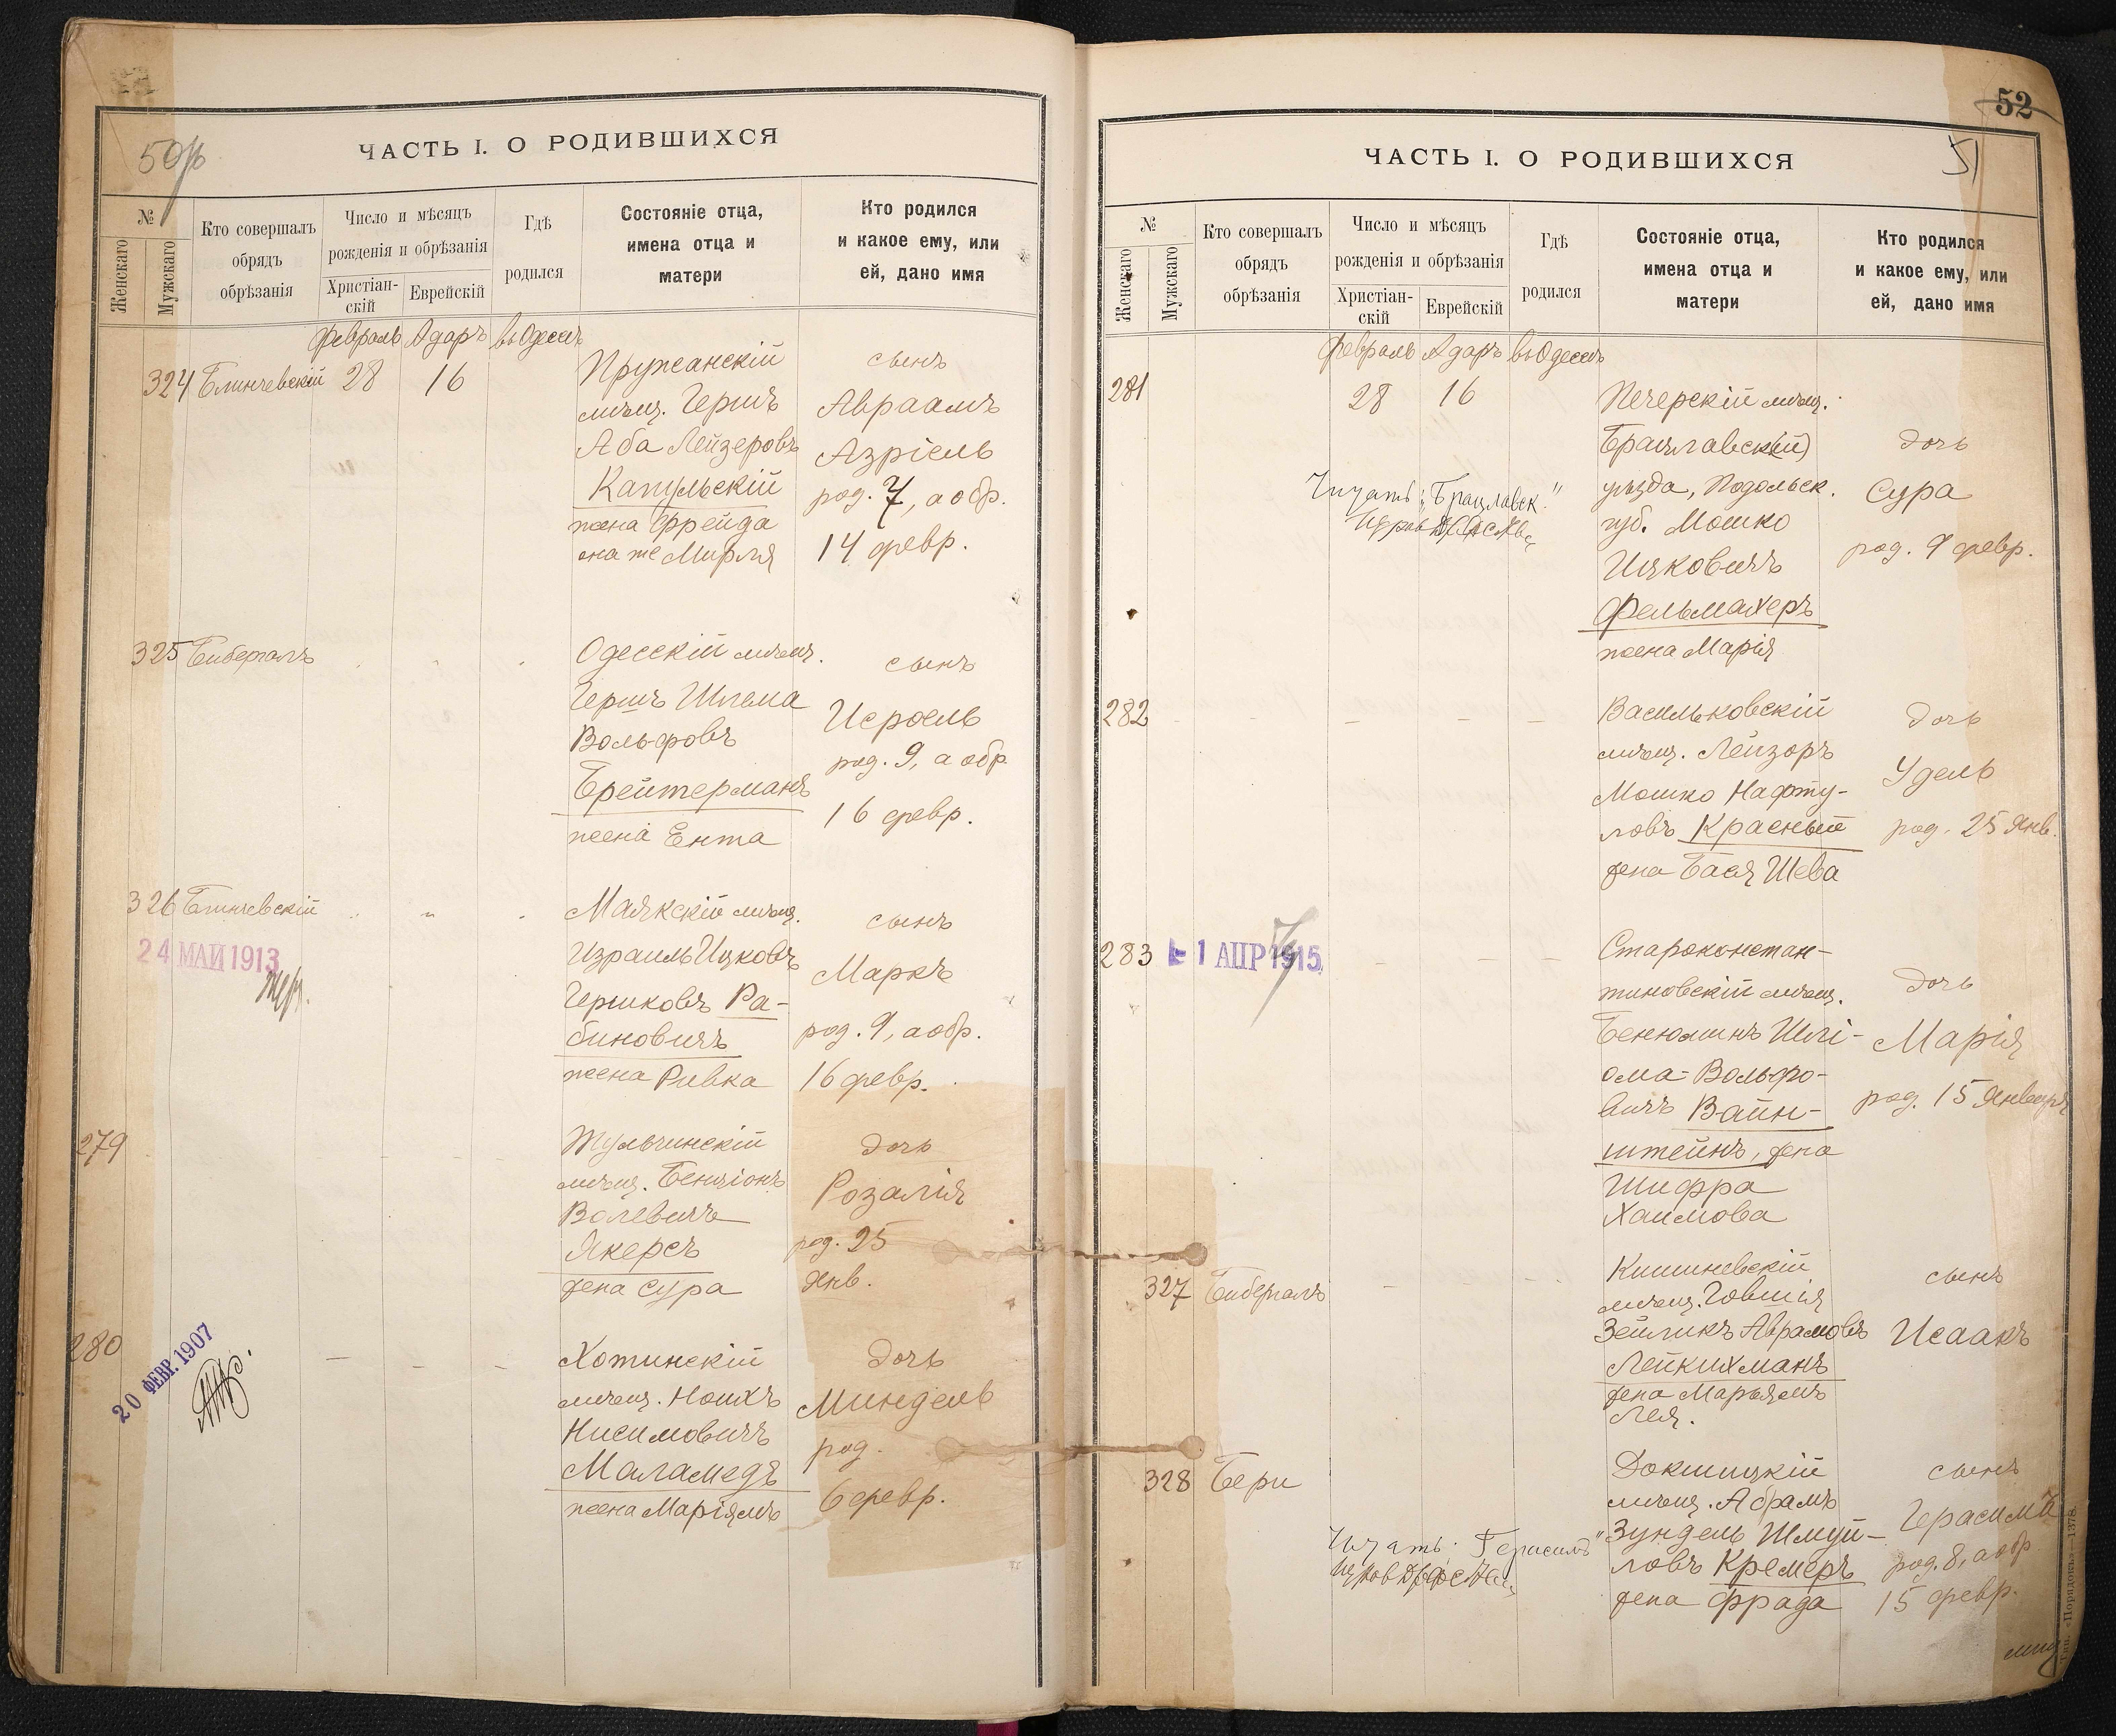 50 об
ЧАСТЬ I. О РОДИВШИХСЯ
№
Женскаго
Мужскаго
Кто совершалъ
обрядъ
обрѣзанія
Число и мѣсяцъ
рожденія и обрѣзанія
Христіан-
скій
Еврейскій
Гдѣ
родился
Состояніе отца,
имена отца и
матери
Кто родился
и какое ему, или
ей, дано имя
Февраль Адаръ въ Одессѣ
324 Блинчевскій 28 16
Пружанскій
мѣщ. Гершъ
Аба Лейзеровъ
Капульскій
жена Фрейда
она же Мирля
сынъ
Авраамъ
Азріель
род. 7, а обр.
14 февр.
325 Бибергалъ
Одесскій мѣщ.
Гершъ Шлема
Вольфовъ
Брейтерманъ
жена Ента
сынъ
Исроель
род. 9, а обр
16 февр.
326 Блинчевскій
24 МАЙ 1913
Маякскій мѣщ.
Израиль Ицковъ
Гершковъ Ра-
биновичъ
жена Ривка
сынъ
Маркъ
род. 9, а обр.
16 февр.
279
Тульчинскій
мѣщ. Бенціонъ
Волевичъ
Якерсъ
жена Сура
дочь
Розалія
род. 25
янв.
280
20 ФЕВР. 1907
Хотинскій
мѣщ. Ноихъ
Нисимовичъ
Маламедъ
жена Маріямъ
дочь
Миндель
род.
6 февр.
52
51
ЧАСТЬ I. О РОДИВШИХСЯ
№
Женскаго
Мужскаго
Кто совершалъ
обрядъ
обрѣзанія
Число и мѣсяцъ
рожденія и обрѣзанія
Христіан-
скій
Еврейскій
Гдѣ
родился
Состояніе отца,
имена отца и
матери
Кто родился
и какое ему, или
ей, дано имя
Февраль Адаръ въ Одессѣ
281 28 16
Печерскій мѣщ.
Брацлавск(ій)
уѣзда, Подольск.
губ. Мошко
Ицковичъ
Фельмахеръ
жена Марія
дочь
Сура
род. 9 февр.
Читать: „Брацлавск."
282
Васильковскій
мѣщ. Лейзоръ
Мошко Нафту-
ловъ Красный
жена Бася Шева
дочь
Удель
род. 25 Янв.
283 1 АПР 1915
Староконстан-
тиновскій мѣщ.
Бенюминъ Шлі-
ома-Вольфо-
вичъ Вайн-
штейнъ, жена
Шифра
Хаимова
дочь
Марія
род. 15 Января
327 Бибергалъ
Кишиневскій
мѣщ. Говшія
Зейликъ Аврамовъ
Лейкихманъ
жена Марьямъ
Лея.
сынъ
Исаакъ
328 Бери
Докшицкій
мѣщ. Абрамъ
Зундель Шмуй-
ловъ Кремеръ
жена Фрада
сынъ
Герасимъ
род. 8, а обр
15 февр.
Читать: „Герасимъ"
Тип. „Порядокъ".—1378.